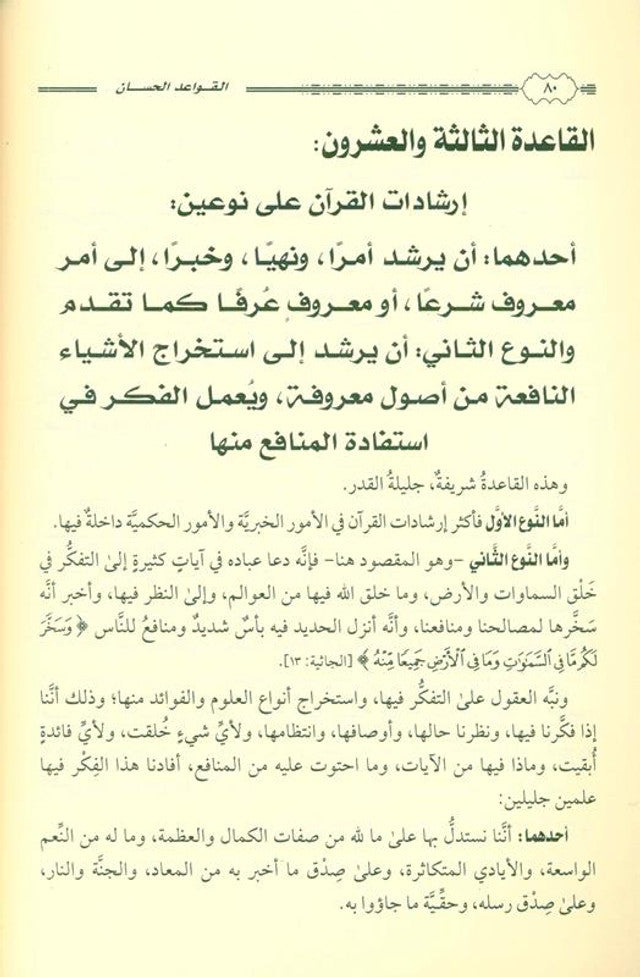 ٨٠ القواعد الحسان
القاعدة الثالثة والعشرون:
إرشادات القرآن على نوعين:
أحدهما: أن يرشد أمرًا، ونهيًا، وخبرًا، إلى أمر
معروف شرعًا، أو معروف عُرفًا كما تقدم
والنوع الثاني: أن يرشد إلى استخراج الأشياء
النافعة من أصول معروفة، ويُعمل الفكر في
استفادة المنافع منها
وهذه القاعدةُ شريفةٌ، جليلةُ القدر.
أمَّا النَّوع الأوَّل فأكثر إرشادات القرآن في الأمور الخبريَّة والأمور الحكميَّة داخلةٌ فيها.
وأمَّا النَّوع الثَّاني -وهو المقصود هنا- فإنَّه دعا عباده في آياتٍ كثيرةٍ إلىٰ التفكُّر في
خَلْق السماوات والأرض، وما خلق الله فيها من العوالم، وإلىٰ النظر فيها، وأخبر أنَّه
سَخَّرها لمصالحنا ومنافعنا، وأنَّه أنزل الحديد فيه بأسٌ شديدٌ ومنافعُ للنَّاس ﴿ وَسَخَّرَ
لَكُم مَّا فِي السَّمَٰوَٰتِ وَمَا فِي ٱلْأَرْضِ جَمِيعًا مِّنْهُ ﴾ [الجاثية: ١٣].
ونبَّه العقول علىٰ التفكُّر فيها، واستخراج أنواع العلوم والفوائد منها؛ وذلك أنَّنا
إذا فكَّرنا فيها، ونظرنا حالها، وأوصافها، وانتظامها، ولأيِّ شيءٍ خُلقت، ولأيِّ فائدةٍ
أُبقيت، وماذا فيها من الآيات، وما احتوت عليه من المنافع، أفادنا هذا الفِكْر فيها
علمين جليلين:
أحدهما: أنَّنا نستدلُّ بها علىٰ ما لله من صفات الكمال والعظمة، وما له من النِّعم
الواسعة، والأيادي المتكاثرة، وعلىٰ صِدْق ما أخبر به من المعاد، والجنَّة والنار،
وعلىٰ صِدْق رسله، وحقِّيَّة ما جاؤوا به.